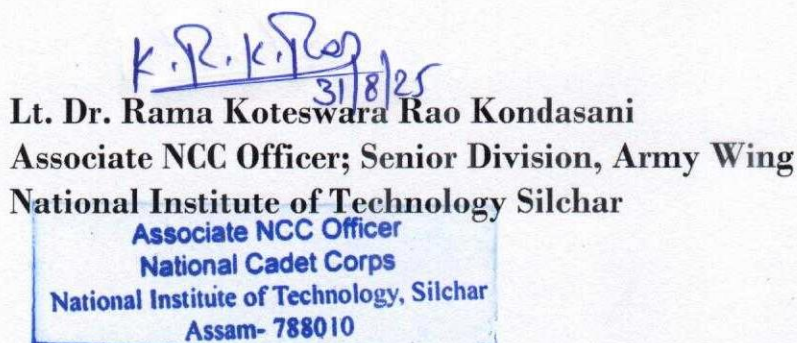 K.R.K.Rao
31/8/25
Lt. Dr. Rama Koteswara Rao Kondasani
Associate NCC Officer; Senior Division, Army Wing
National Institute of Technology Silchar
Associate NCC Officer
National Cadet Corps
National Institute of Technology, Silchar
Assam- 788010